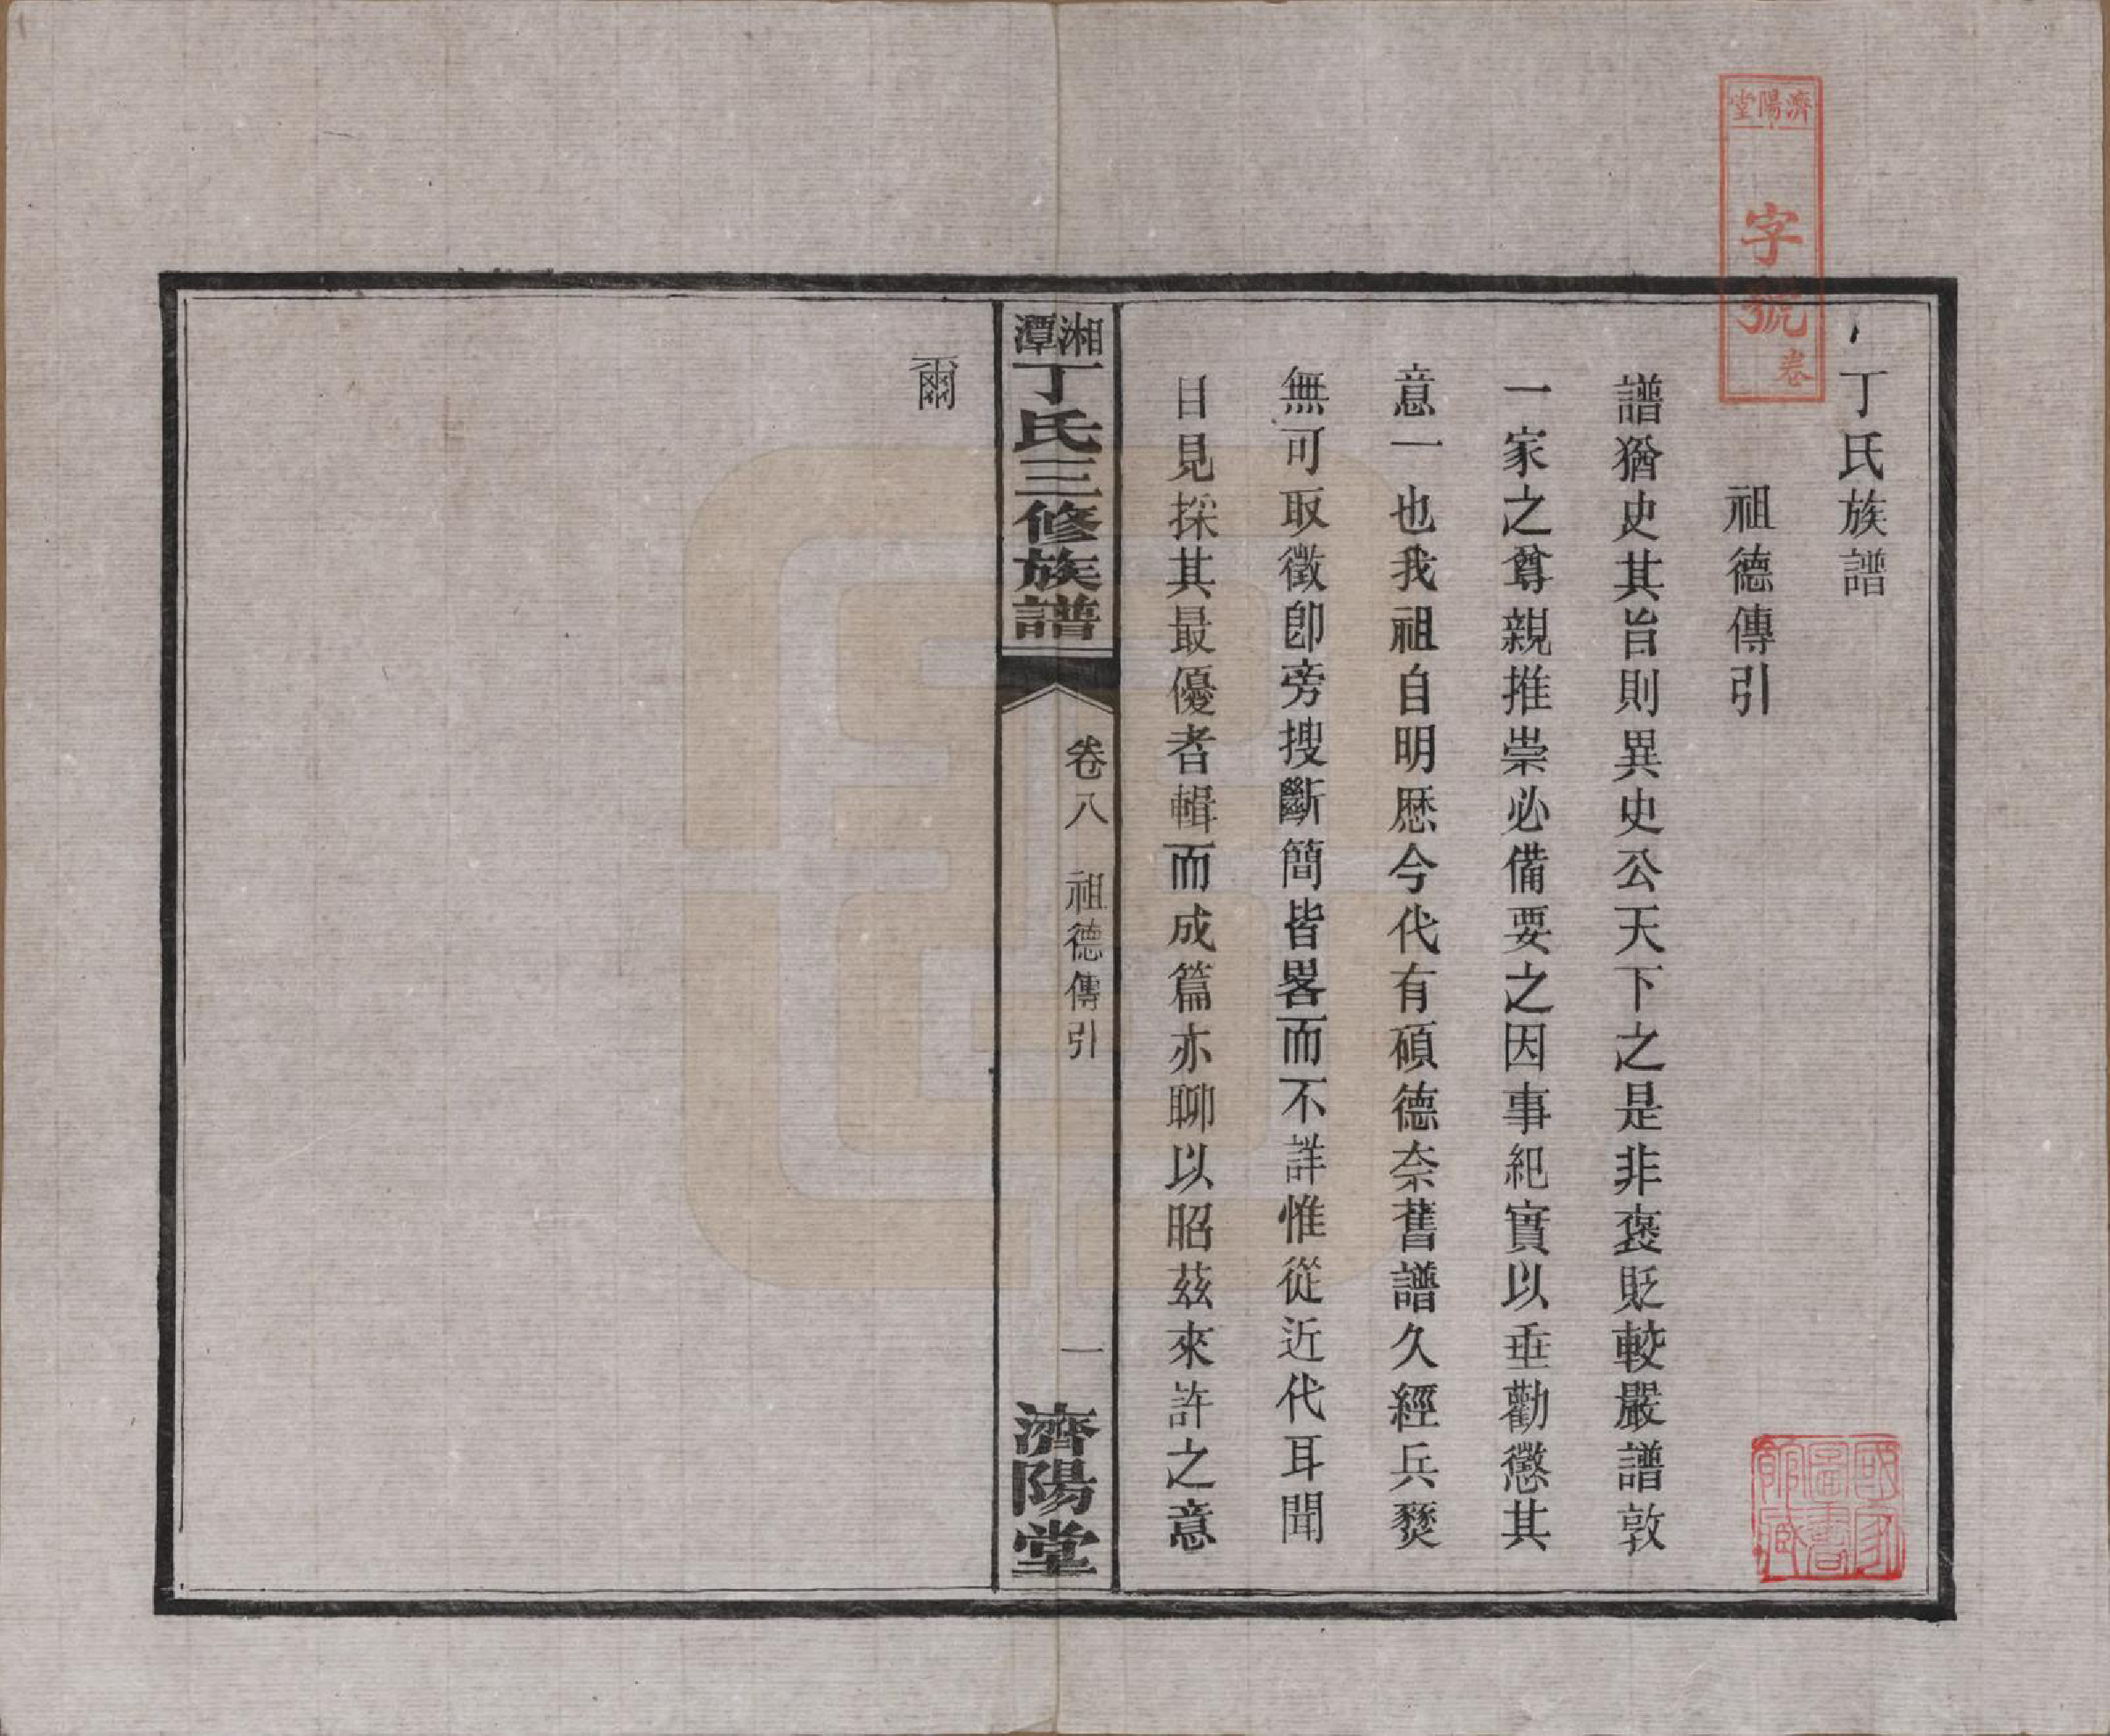 丁氏族譜
祖德傳引
譜猶史其旨則異史公天下之是非褒貶較嚴譜敦
一家之尊親推崇必備要之因事紀實以垂勸懲其
意一也我祖自明歷今代有碩德奈舊譜久經兵燹
無可取徵卽旁搜斷簡皆畧而不詳惟從近代耳聞
目見採其最優者輯而成篇亦聊以昭茲來許之意
湘潭丁氏三修族譜
卷八 祖德傳引
一
濟陽堂
爾
濟陽堂
字號
卷
國家圖書館藏